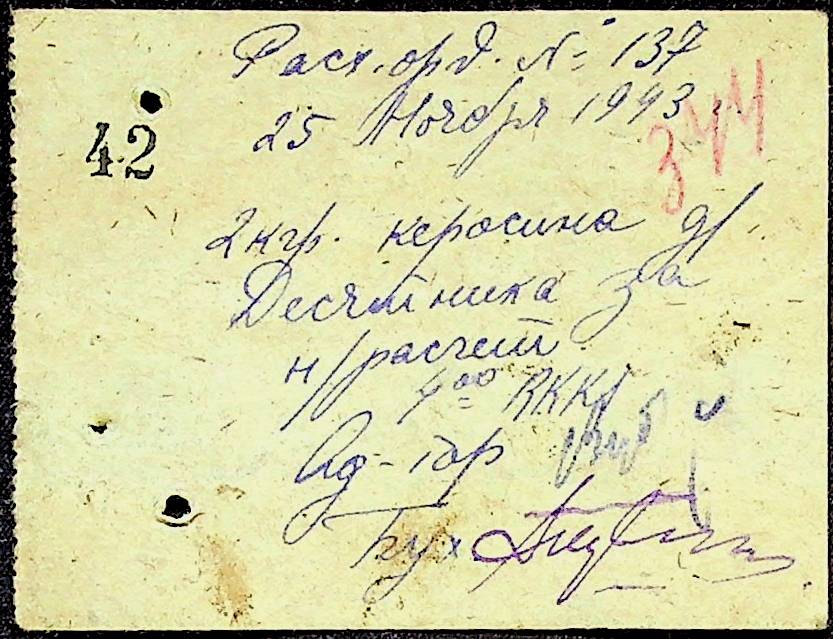 Расх. орд. № 137
25 Ноября 1943
344
42
2 кгр. керосина д/
Десятника за
н/расчет
4 00 RKK
Ад-тор
Бух